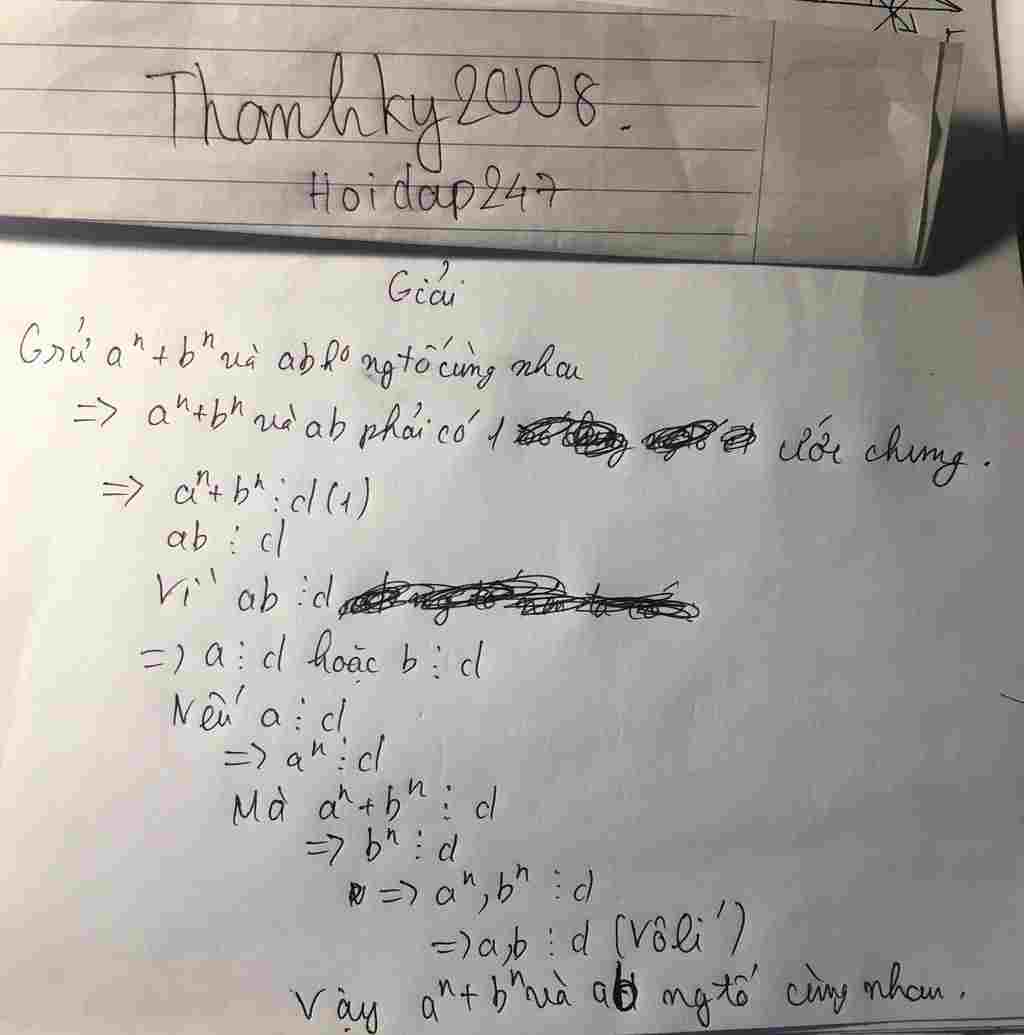 Thanhky2008.
Hoidap247
Giải
Gsử aⁿ + bⁿ và ab ko ng tố cùng nhau
=> aⁿ + bⁿ và ab phải có 1 ước chung.
=> aⁿ + bⁿ ⋮ d (1)
ab ⋮ d
Vì ab ⋮ d
=> a ⋮ d hoặc b ⋮ d
Nếu a ⋮ d
=> aⁿ ⋮ d
Mà aⁿ + bⁿ ⋮ d
=> bⁿ ⋮ d
=> aⁿ, bⁿ ⋮ d
=> a, b ⋮ d (Vô lí)
Vậy aⁿ + bⁿ và ab ng tố cùng nhau.